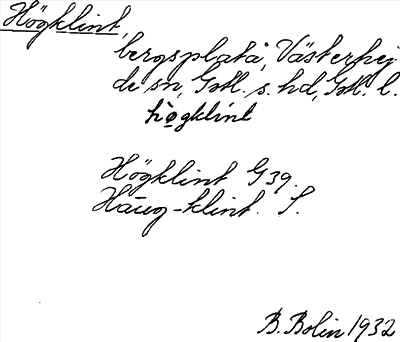 Högklint,
bergsplatå, Västerhej
de sn, Gotl. s. hd, Gotl. l.
hø̀gklint
Högklint G 39.
Hāug-klint. S.
B. Bolin 1932